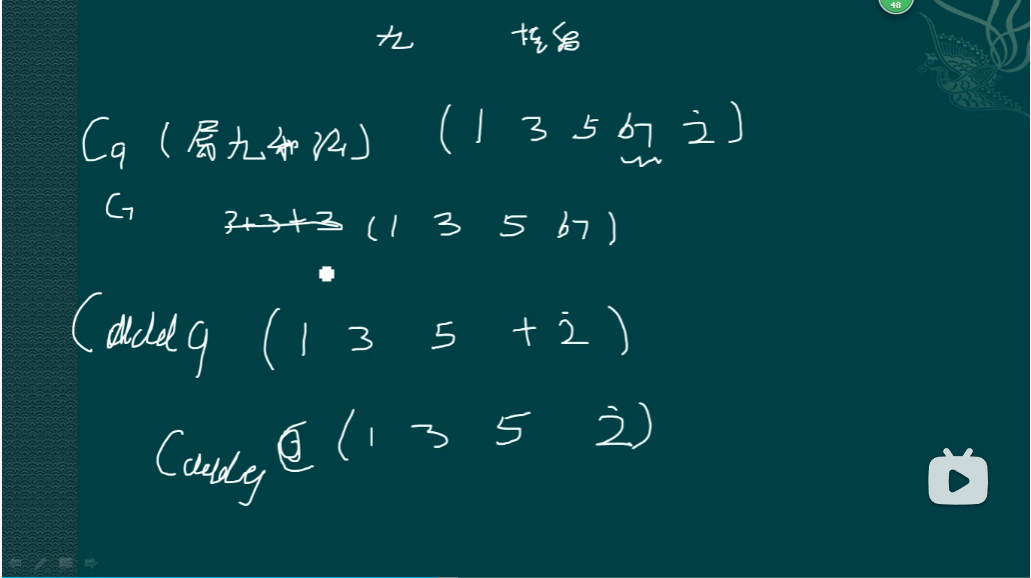 九 挂留
C9 (属九和弦) (1 3 5 b7 2̇)
C7 3+3+3 (1 3 5 b7)
Cadd9 (1 3 5 + 2̇)
Cadd9 (1 3 5 2̇)
48